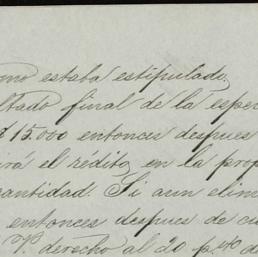 omo estaba estipulado,
ltado final de la esper
$15.000 entonces despues
rá el redito, en la prop
cantidad. Si aun elim
entonces despues de cu
V. derecho al 20 p.sto de